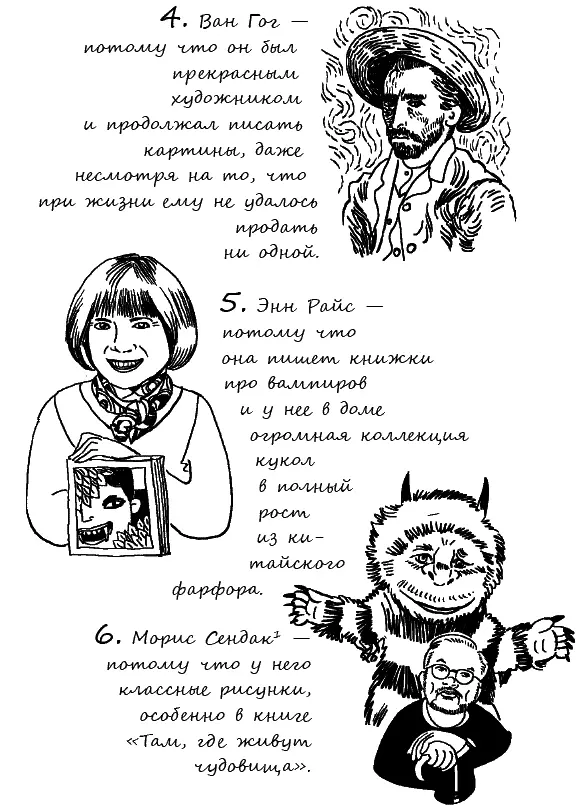 4. Ван Гог —
потому что он был
прекрасным
художником
и продолжал писать
картины, даже
несмотря на то, что
при жизни ему не удалось
продать
ни одной.
5. Энн Райс —
потому что
она пишет книжки
про вампиров
и у нее в доме
огромная коллекция
кукол
в полный
рост
из ки-
тайского
фарфора.
6. Морис Сендак¹ —
потому что у него
классные рисунки,
особенно в книге
«Там, где живут
чудовища».